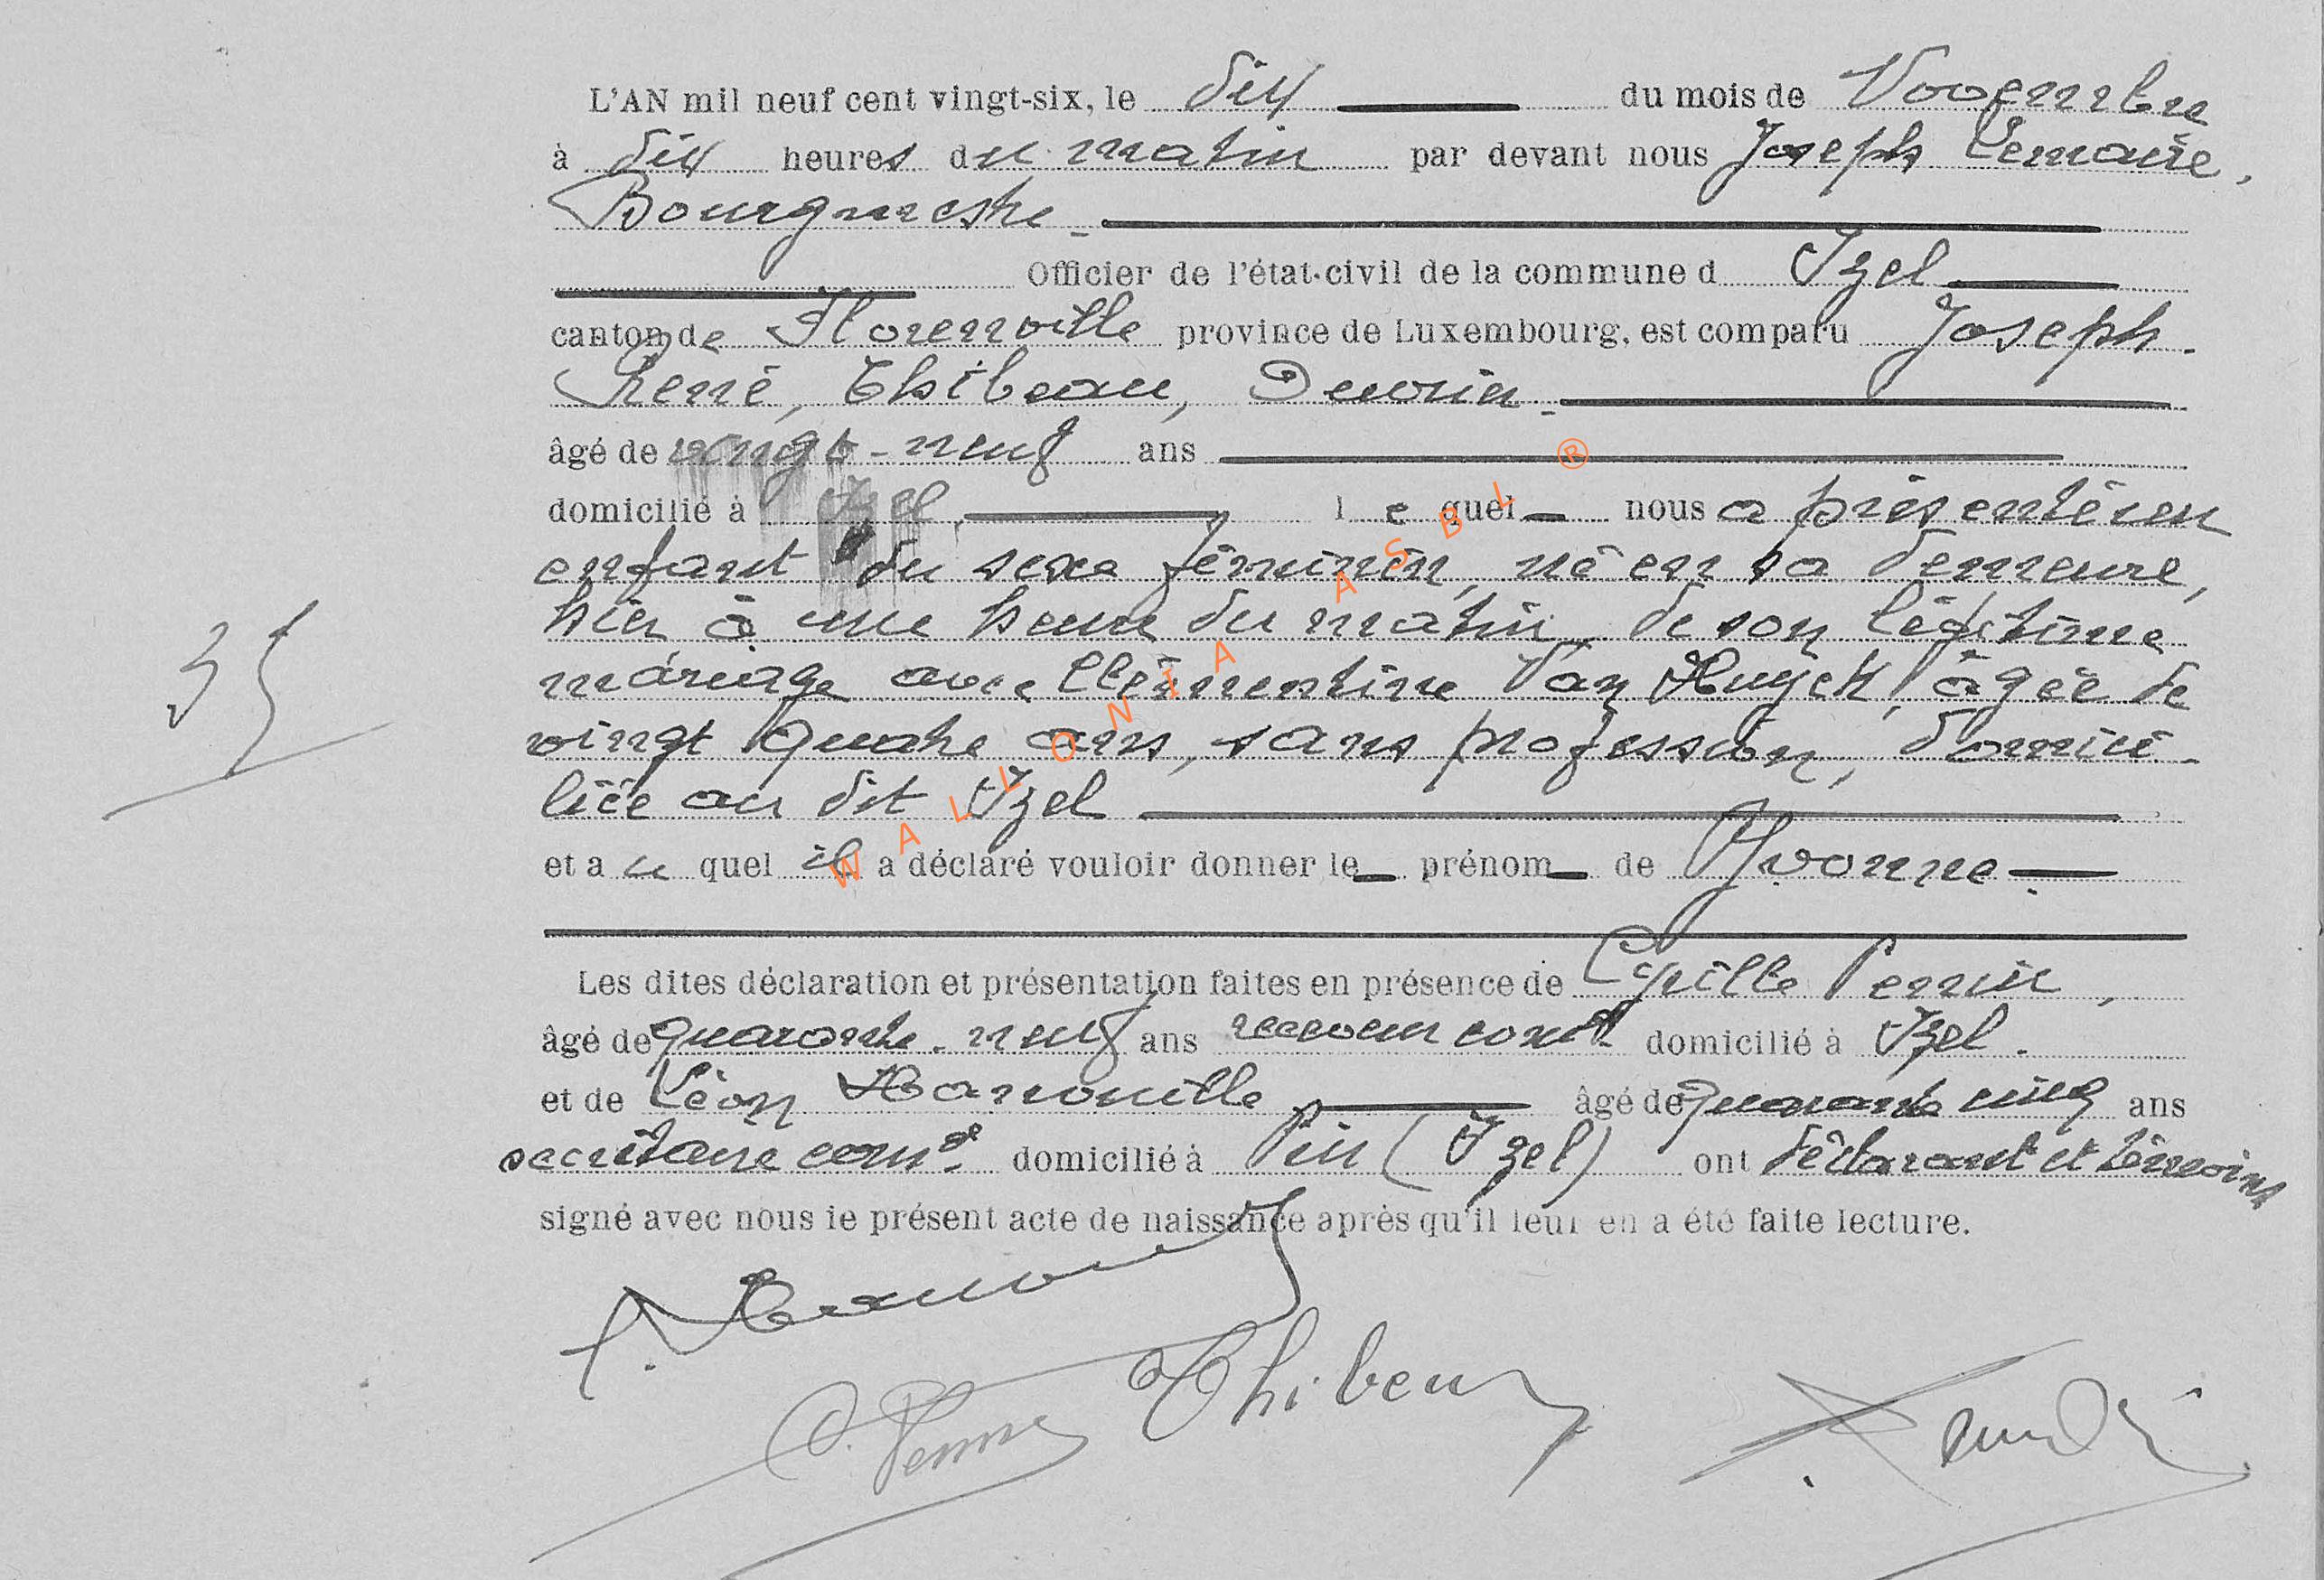 L'AN mil neuf cent vingt-six, le dix du mois de Novembre
à dix heures du matin par devant nous Joseph Lemaire,
Bourgmestre
Officier de l'état-civil de la commune d Izel
canton de Florenville province de Luxembourg, est comparu Joseph
René, Thibeau, Ouvrier
âgé de vingt-neuf ans
domicilié à Izel, le quel nous a présenté un
enfant du sexe féminin, né en sa demeure,
hier à une heure du matin, de son légitime
mariage avec Clémentine Van Huyck, âgée de
vingt quatre ans, sans profession, domici-
liée au dit Izel
et au quel il a déclaré vouloir donner le prénom de Yvonne
Les dites déclaration et présentation faites en présence de Cyrille Perrin,
âgé de quarante-neuf ans receveur comal domicilié à Izel.
et de Léon Hanouille âgé de quarante cinq ans
secrétaire comal domicilié à Pin (Izel) ont déclarant et témoins
signé avec nous le présent acte de naissance après qu'il leur en a été faite lecture.
35
Thibeau
WALLONIA ASBL ®